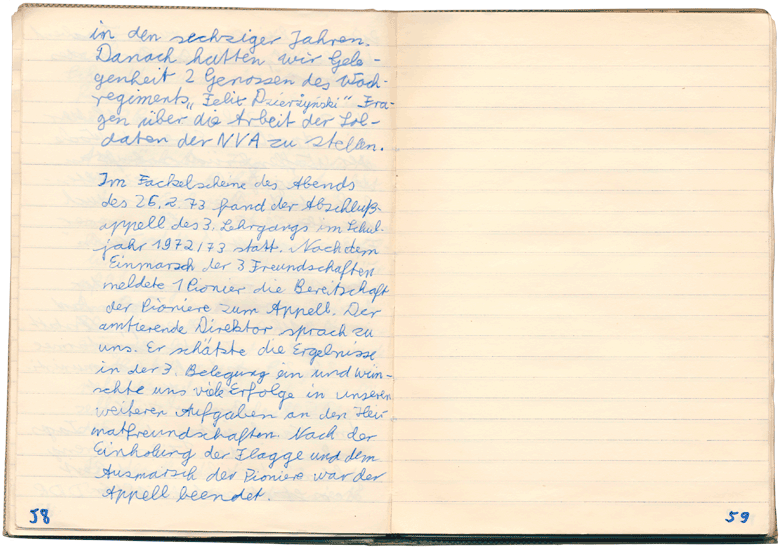 in den sechziger Jahren.
Danach hatten wir Gele-
genheit 2 Genossen des Wach-
regiments „Felix Dzierżyński" Fra-
gen über die Arbeit der Sol-
daten der NVA zu stellen.
Im Fackelscheine des Abends
des 26.2.73 fand der Abschluß-
appell des 3. Lehrgangs im Schul-
jahr 1972/73 statt. Nach dem
Einmarsch der 3 Freundschaften
meldete 1 Pionier die Bereitschaft
der Pioniere zum Appell. Der
amtierende Direktor sprach zu
uns. Er schätzte die Ergebnisse
in der 3. Belegung ein und wün-
schte uns viele Erfolge in unseren
weiteren Aufgaben an den Hei-
matfreundschaften. Nach der
Einholung der Flagge und dem
Ausmarsch der Pioniere war der
Appell beendet.
58
59